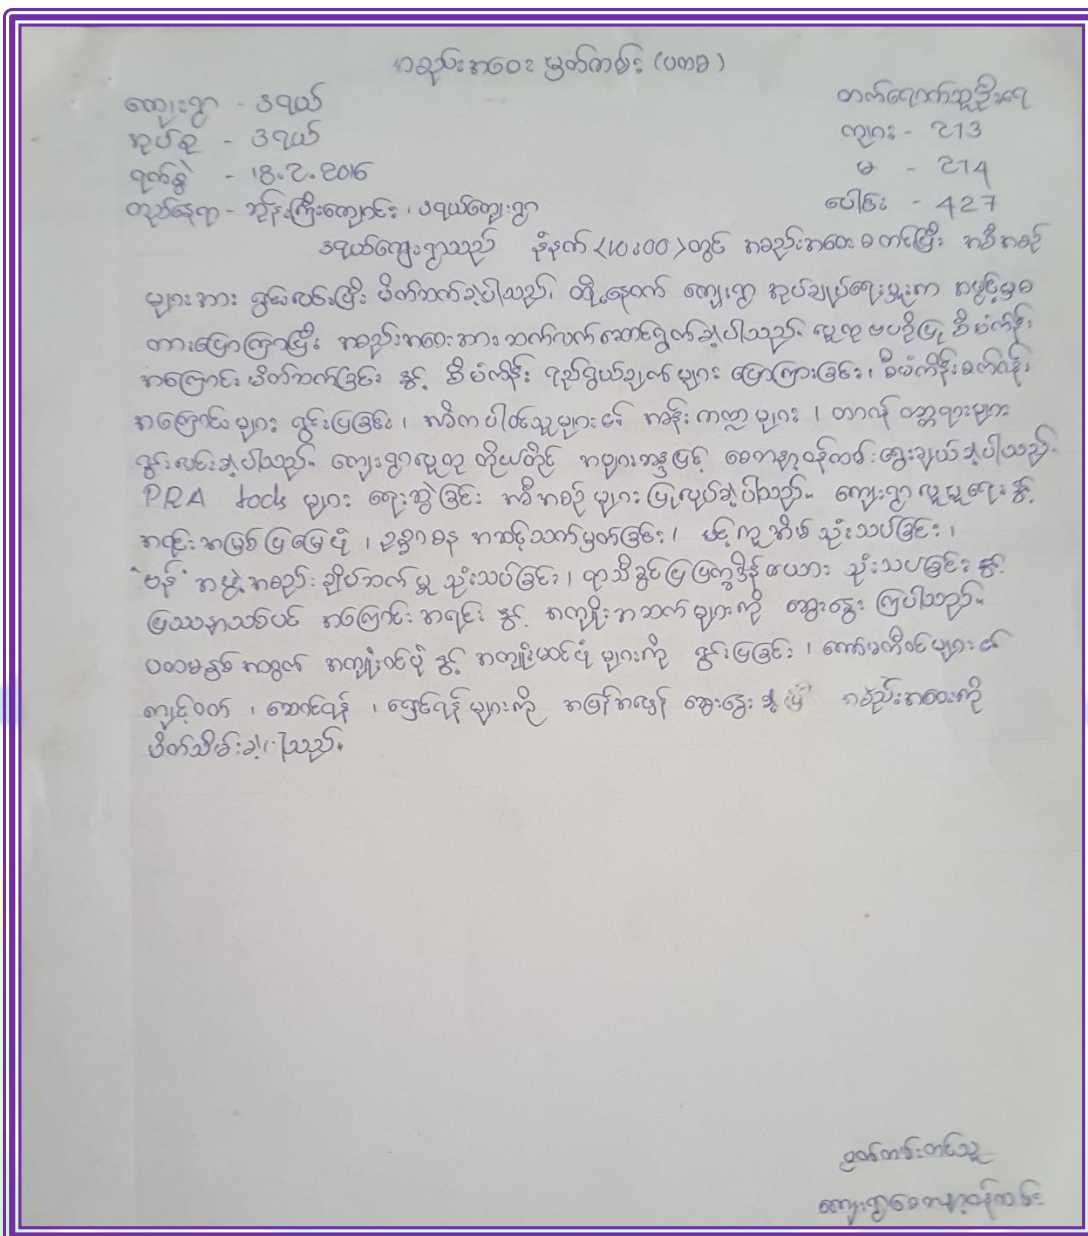 အစည်းအဝေး မှတ်တမ်း (ပထမ)
ကျေးရွာ - ဒရယ်
အုပ်စု - ဒရယ်
ရက်စွဲ - 18.2.2016
တည်နေရာ - ဘုန်းကြီးကျောင်း၊ ဒရယ်ကျေးရွာ
တက်ရောက်သူဦးရေ
ကျား - 213
မ - 214
ပေါင်း - 427
ဒရယ်ကျေးရွာသည် နံနက် (10:00) တွင် အစည်းအဝေး စတင်ပြီး အစီအစဉ်
များအား ရှင်းလင်းပြီး မိတ်ဆက်ခဲ့ပါသည်။ ထို့နောက် ကျေးရွာ အုပ်ချုပ်ရေးမှူးက အဖွင့်အမှာ
စကားပြောကြားပြီး အစည်းအဝေးအား ဆက်လက်ဆောင်ရွက်ခဲ့ပါသည်။ လူထုဗဟိုပြု စီမံကိန်း
အကြောင်း မိတ်ဆက်ခြင်း နှင့် စီမံကိန်း ရည်ရွယ်ချက်များ ပြောကြားခြင်း၊ စီမံကိန်းစက်ဝန်း
အကြောင်းများ ရှင်းပြခြင်း၊ အဓိကပါဝင်သူများ၏ အခန်းကဏ္ဍများ၊ တာဝန် ဝတ္တရားများ
ရှင်းလင်းခဲ့ပါသည်။ ကျေးရွာလူထု ကိုယ်တိုင် အများဆန္ဒဖြင့် စေတနာ့ဝန်ထမ်း ရွေးချယ်ခဲ့ပါသည်။
PRA tools များ ရေးဆွဲခြင်း အစီအစဉ်များ ပြုလုပ်ခဲ့ပါသည်။ ကျေးရွာ လူမှုရေး နှင့်
အရင်းအမြစ်ပြမြေပုံ၊ ဥစ္စာဓန အဆင့်သတ်မှတ်ခြင်း၊ ပင့်ကူအိမ် သုံးသပ်ခြင်း၊
"ဗန်" အဖွဲ့အစည်း ချိတ်ဆက်မှု သုံးသပ်ခြင်း၊ ရာသီခွင်ပြ ပြက္ခဒိန် ဇယား သုံးသပ်ခြင်း နှင့်
ပြဿနာသစ်ပင် အကြောင်းအရင်း နှင့် အကျိုးအဆက်များကို ဆွေးနွေးကြပါသည်။
ပထမနှစ်အတွက် အကျုံးဝင်ပုံ နှင့် အကျုံးမဝင်ပုံများကို ရှင်းပြခြင်း၊ ကော်မတီဝင်များ၏
ကျင့်ဝတ်၊ ဆောင်ရန်၊ ရှောင်ရန်များကို အပြန်အလှန် ဆွေးနွေးခဲ့ပြီး အစည်းအဝေးကို
ပိတ်သိမ်းခဲ့ပါသည်။
မှတ်တမ်းတင်သူ
ကျေးရွာစေတနာ့ဝန်ထမ်း